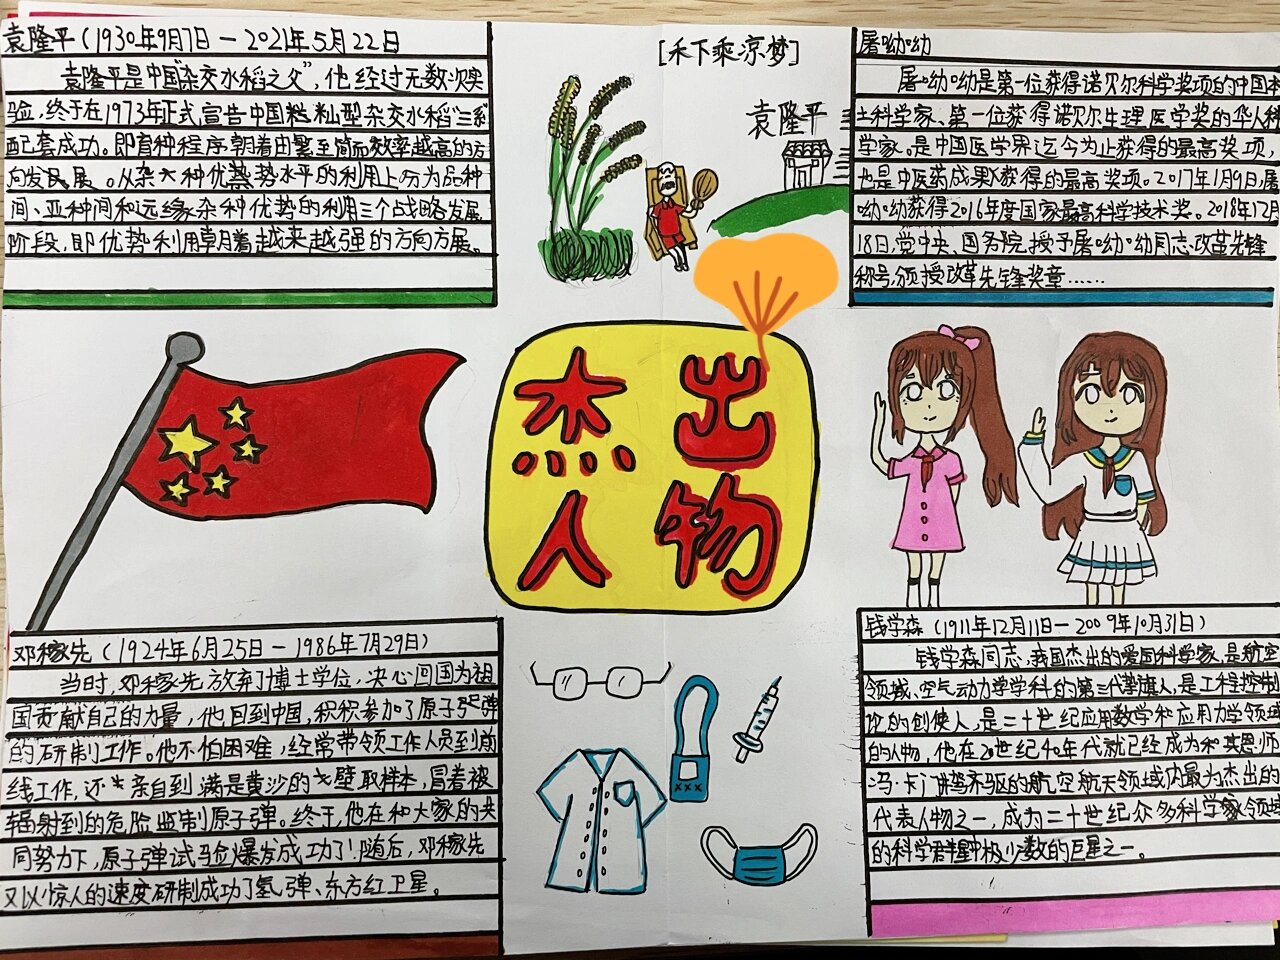 袁隆平(1930年9月7日—2021年5月22日
袁隆平是中国"杂交水稻之父",他经过无数次实
验,终于在1973年正式宣告中国籼型杂交水稻"三系
配套成功。即育种程序朝着由繁至简而效率越高的方
向发展。从杂交种优势水平的利用上分为品种
间、亚种间和远缘杂种优势的利用三个战略发展
阶段,即优势利用朝着越来越强的方向方展。
[禾下乘凉梦]
袁隆平
屠呦呦
屠呦呦是第一位获得诺贝尔科学奖项的中国本
土科学家、第一位获得诺贝尔生理医学奖的华人科
学家。是中国医学界迄今为止获得的最高奖项,
也是中医药成果获得的最高奖项。2017年1月9日,屠
呦呦获得2016年度国家最高科学技术奖。2018年12月
18日,党中央、国务院授予屠呦呦同志改革先锋
称号,颁授改革先锋奖章……
杰出
人物
邓稼先(1924年6月25日—1986年7月29日)
当时,邓稼先放弃了博士学位,决心回国为祖
国贡献自己的力量,他回到中国,积积参加了原子弹
的研制工作。他不怕困难,经常带领工作人员到前
线工作,还亲自到满是黄沙的戈壁取样本,冒着被
辐射到的危险监制原子弹。终于,他在和大家的共
同努力下,原子弹试验爆发成功了!随后,邓稼先
又以惊人的速度研制成功了氢弹、东方红卫星。
钱学森(1911年12月11日—2009年10月31日)
钱学森同志,我国杰出的爱国科学家,是航空
领域、空气动力学学科的第三代挚旗人,是工程控制
论的创使人,是二十世纪应用数学和应用力学领域
的人物,他在20世纪40年代就已经成为和其恩师
冯·卡门并驾齐驱的航空航天领域内最为杰出的
代表人物之一,成为二十世纪众多科学家领域
的科学群星中极少数的巨星之一。